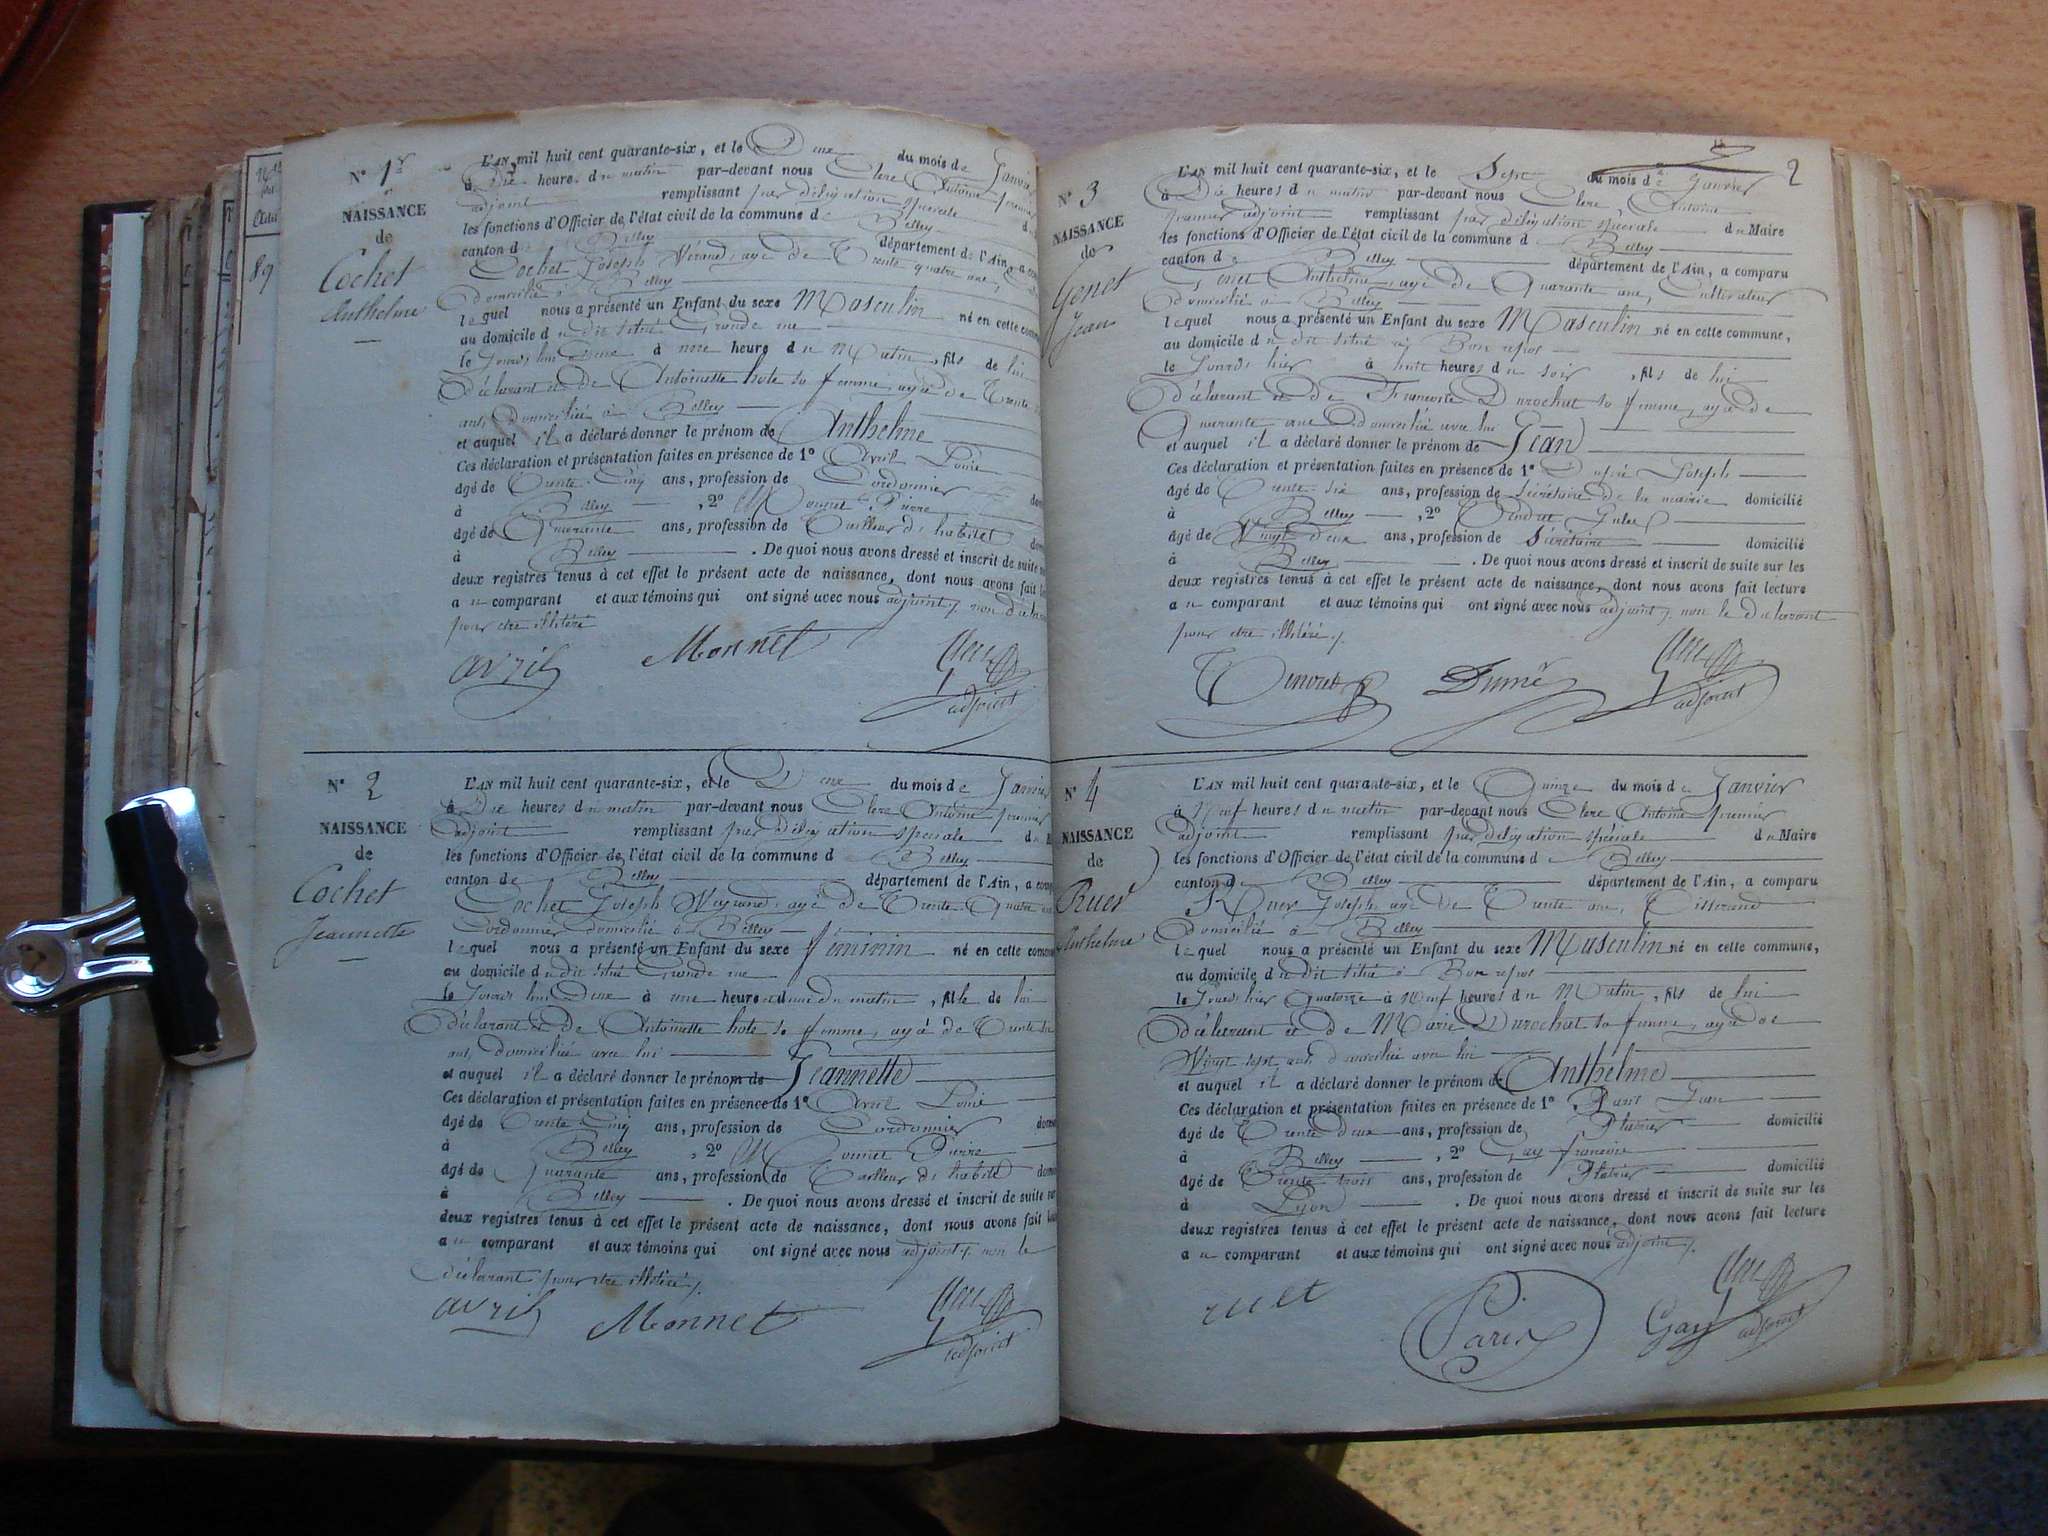 N° 1er
NAISSANCE
de
Cochet
Anthelme
L'AN mil huit cent quarante-six, et le Deux du mois de Janvier
à Dix heures du matin par-devant nous Clerc Antoine premier
adjoint remplissant par délégation spéciale
les fonctions d'Officier de l'état civil de la commune d Belley
canton d Belley département de l'Ain, a
Cochet Joseph agé de Trente quatre ans,
domicilié à Belley
lequel nous a présenté un Enfant du sexe Masculin né en cette
au domicile du dit situé Grande rue
le Jourd'hui Deux à une heure du Matin, fils de lui
déclarant et de Antoinette sa femme, agée de Trente
ans, domiciliée à Belley
et auquel il a déclaré donner le prénom de Anthelme
Ces déclaration et présentation faites en présence de 1° Avril Louis
âgé de Trente-Cinq ans, profession de Cordonnier
à Belley, 2° Monnet Pierre
âgé de Quarante ans, profession de Tailleur d'habits
à Belley. De quoi nous avons dressé et inscrit de suite
deux registres tenus à cet effet le présent acte de naissance, dont nous avons fait
au comparant et aux témoins qui ont signé avec nous adjoint, non
pour être illitéré
avril Monnet Clerc
adjoint
N° 2
NAISSANCE
de
Cochet
Jeannette
L'AN mil huit cent quarante-six, et le Deux du mois de Janvier
à Dix heures du matin par-devant nous Clerc Antoine premier
adjoint remplissant par délégation spéciale
les fonctions d'Officier de l'état civil de la commune d Belley
canton de Belley département de l'Ain, a
Cochet Joseph agé de Trente-Quatre
Cordonnier domicilié à Belley
lequel nous a présenté un Enfant du sexe féminin né en cette
au domicile du dit situé Grande rue
le Jourd'hui Deux à une heure du matin, fille de lui
déclarant et de Antoinette sa femme, agée de Trente
ans, domiciliée avec lui
et auquel il a déclaré donner le prénom de Jeannette
Ces déclaration et présentation faites en présence de 1° Avril Louis
âgé de Trente-Cinq ans, profession de Cordonnier
à Belley, 2° Monnet Pierre
âgé de Quarante ans, profession de Tailleur d'habits
à Belley. De quoi nous avons dressé et inscrit de suite sur
deux registres tenus à cet effet le présent acte de naissance, dont nous avons fait
au comparant et aux témoins qui ont signé avec nous adjoint, non le
déclarant pour être illitéré
avril Monnet Clerc
adjoint
2
N° 3
NAISSANCE
de
Genet
Jean
L'AN mil huit cent quarante-six, et le Sept du mois de Janvier
à Dix heures du matin par-devant nous Clerc Antoine
premier adjoint remplissant par délégation spéciale du Maire
les fonctions d'Officier de l'état civil de la commune d Belley
canton de Belley département de l'Ain, a comparu
Genet Anthelme, agé de Quarante ans, Cultivateur
domicilié à Belley
lequel nous a présenté un Enfant du sexe Masculin né en cette commune,
au domicile du dit situé à Bon repos
le Jourd'hier à huit heures du soir, fils de lui
déclarant et de Francoise Durochat sa femme, agée de
Quarante ans domiciliée avec lui
et auquel il a déclaré donner le prénom de Jean
Ces déclaration et présentation faites en présence de 1° Joseph
âgé de Trente-six ans, profession de Secrétaire de la mairie domicilié
à Belley, 2° Jules
âgé de Vingt deux ans, profession de Secrétaire domicilié
à Belley. De quoi nous avons dressé et inscrit de suite sur les
deux registres tenus à cet effet le présent acte de naissance, dont nous avons fait lecture
au comparant et aux témoins qui ont signé avec nous adjoint, non le Déclarant
pour être illitéré
Clerc
adjoint
N° 4
NAISSANCE
de
Ruet
Anthelme
L'AN mil huit cent quarante-six, et le Quinze du mois de Janvier
à Neuf heures du matin par-devant nous Clerc Antoine premier
adjoint remplissant par délégation spéciale du Maire
les fonctions d'Officier de l'état civil de la commune d Belley
canton d Belley département de l'Ain, a comparu
Ruet Joseph, agé de Trente ans, Tisserand
domicilié à Belley
lequel nous a présenté un Enfant du sexe Masculin né en cette commune,
au domicile du dit situé à Bon repos
le Jourd'hier Quatorze à Neuf heures du Matin, fils de lui
Déclarant et de Marie Durochat sa femme, agée de
Vingt sept ans domiciliée avec lui
et auquel il a déclaré donner le prénom de Anthelme
Ces déclaration et présentation faites en présence de 1° Paris Jean
âgé de Trente Deux ans, profession de Platrier domicilié
à Belley, 2° Gay francois
âgé de Trente trois ans, profession de Platrier domicilié
à Lyon. De quoi nous avons dressé et inscrit de suite sur les
deux registres tenus à cet effet le présent acte de naissance, dont nous avons fait lecture
au comparant et aux témoins qui ont signé avec nous adjoint
ruet Paris Gay Clerc
adjoint